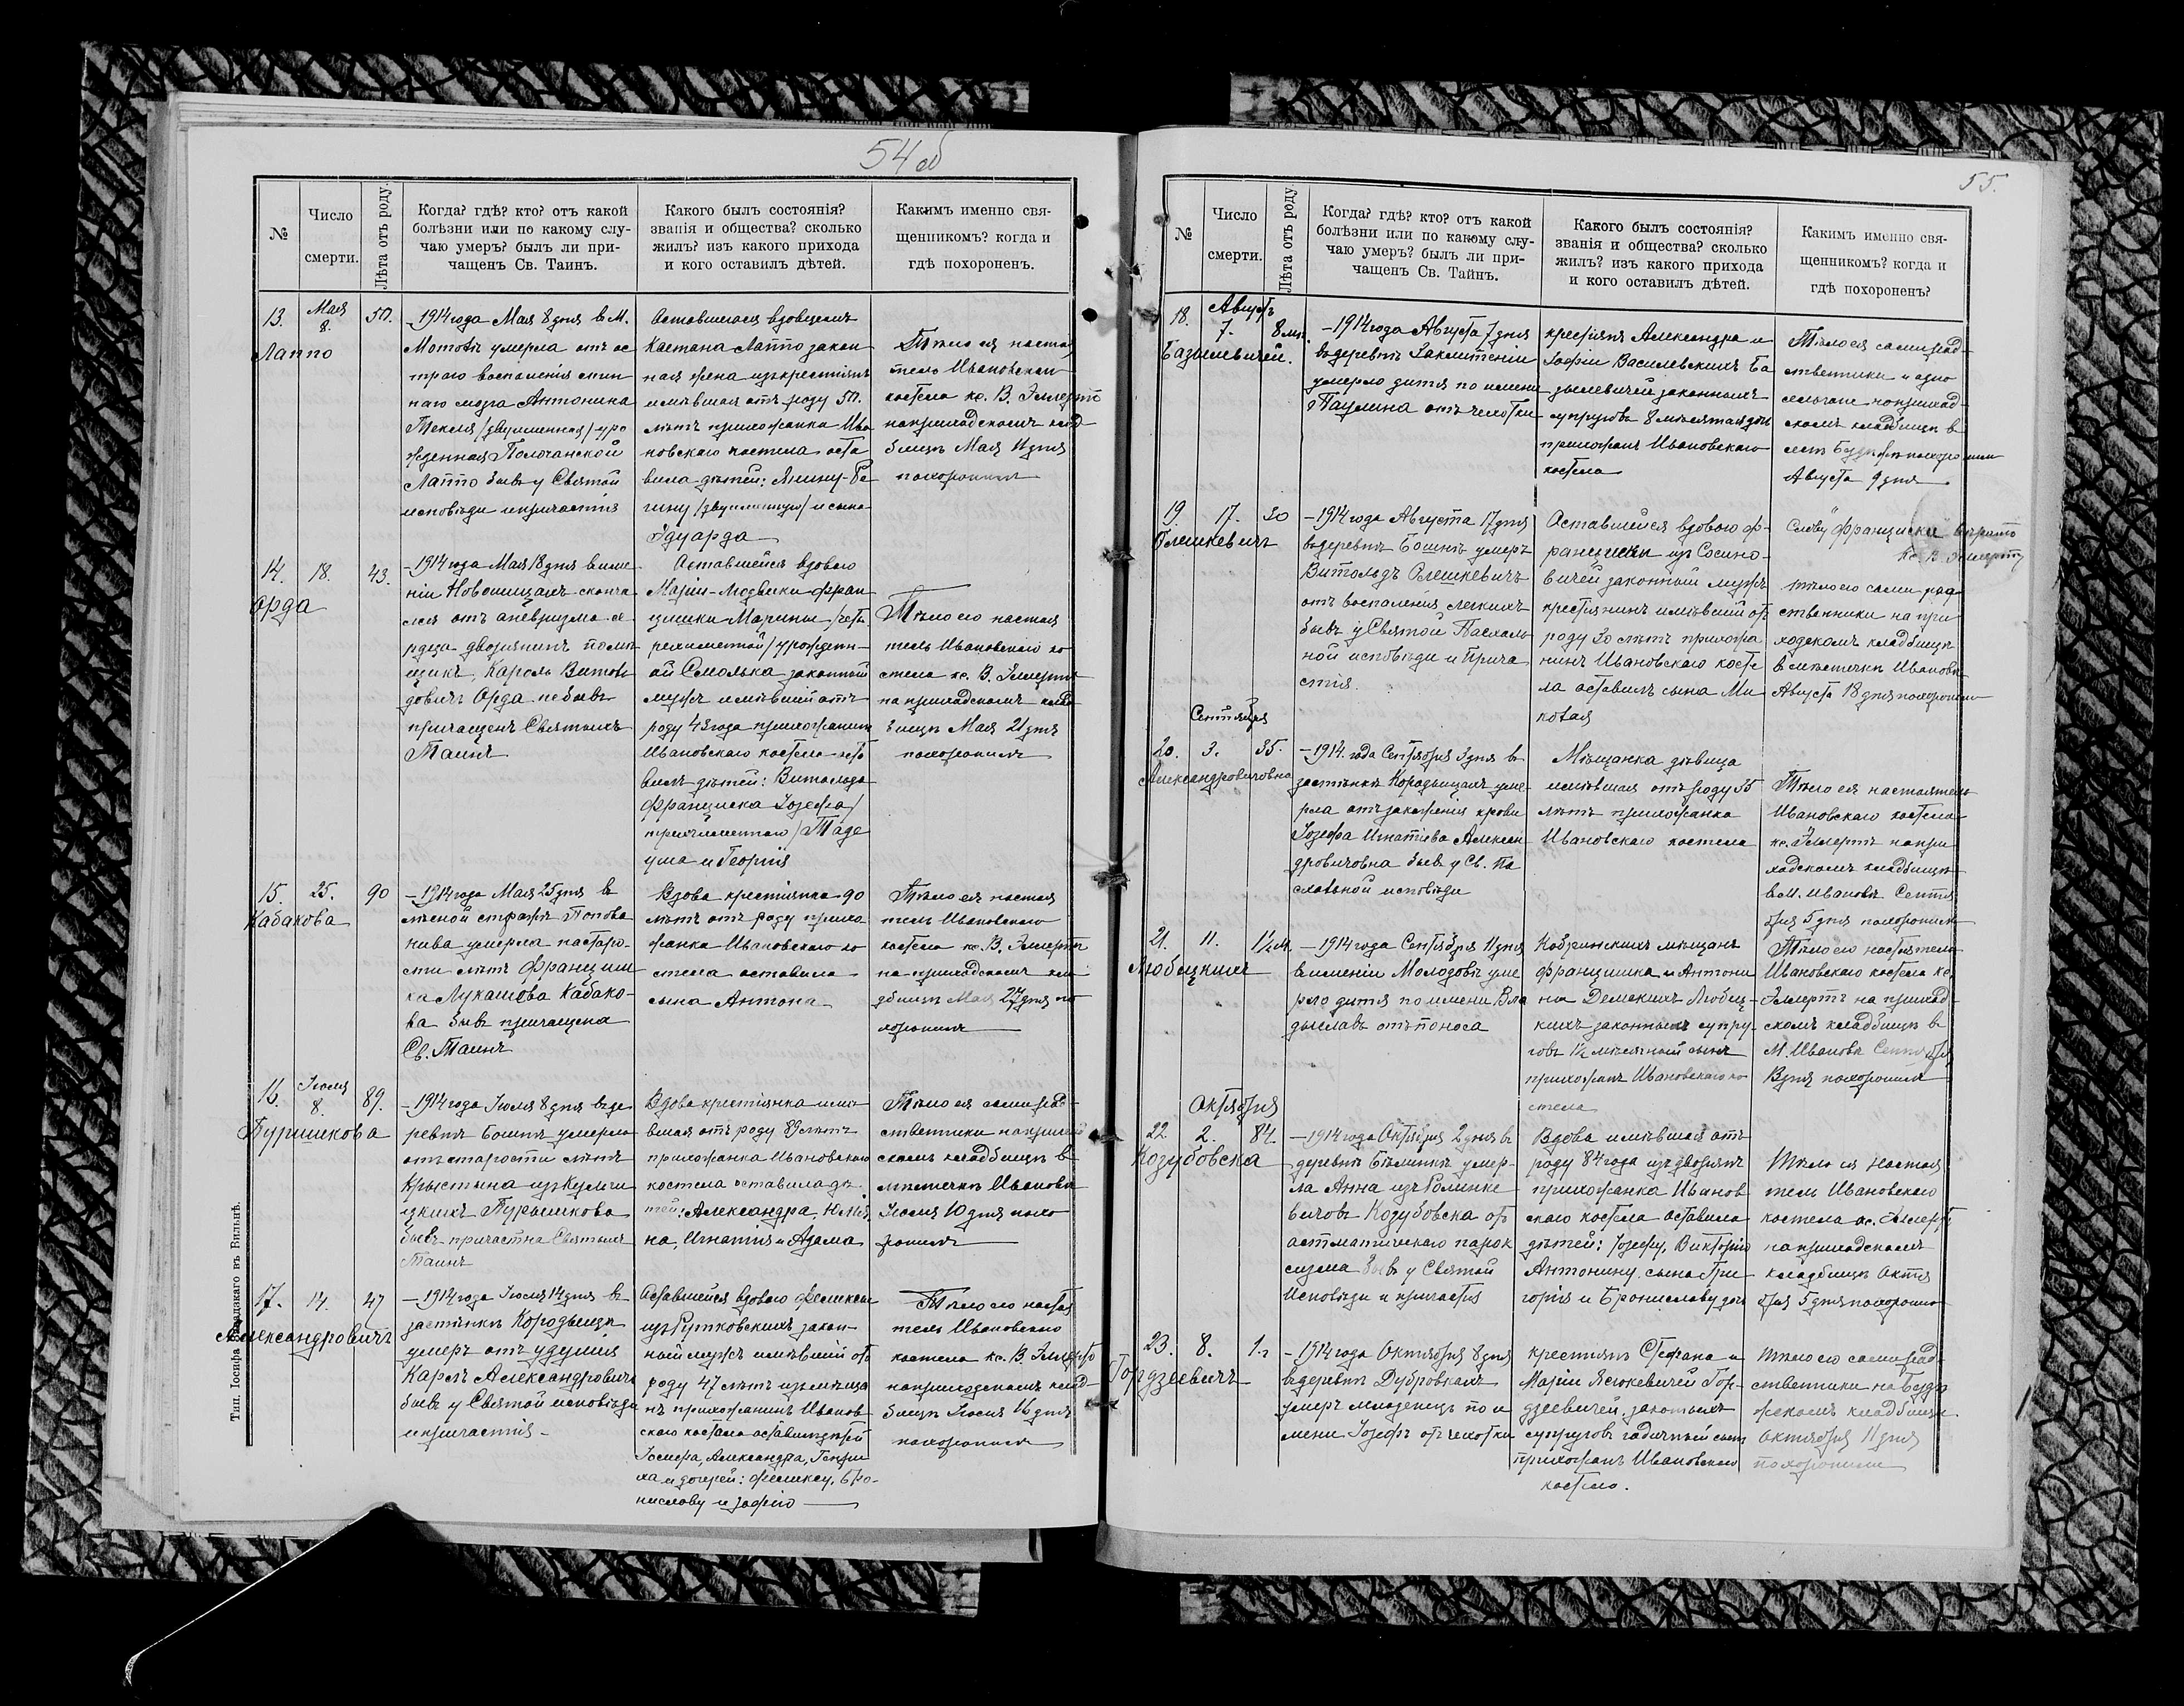 54 об
№
Число
смерти.
Лѣта отъ роду.
Когда? гдѣ? кто? отъ какой
болѣзни или по какому слу-
чаю умеръ? былъ ли при-
чащенъ Св. Таинъ.
Какого былъ состоянія?
званія и общества? сколько
жилъ? изъ какого прихода
и кого оставилъ дѣтей.
Какимъ именно свя-
щенникомъ? когда и
гдѣ похороненъ.
13.
Мая
8.
50.
Лаппо
—1914 года Мая 8 дня в М.
Мотолѣ умерла отъ ос
траго воспаленія спин
наго мозга Антонина
Текля /двуименная/ уро
жденная Полочанской
Лаппо бывъ у Святой
исповѣди и причастія
Оставшагося вдовцемъ
Каетана Лаппо закон
ная жена изъ крестьянъ
имѣвшая отъ роду 50.
лѣтъ прихожанка Ива
новскаго костела оста
вила дѣтей: Янину-Ре
гину /двуименную/ и сына
Эдуарда
Тѣло ея настоя
тель Ивановскаго
костела кс. В. Эммертъ
на приходскомъ клад
бищѣ Мая 11 дня
похоронилъ
14.
18.
43.
Орда
—1914 года Мая 18 дня в име
ніи Новошицахъ сконча
лся отъ аневризма се
рдца дворянинъ помѣ
щикъ, Кароль Витоль
довичъ Орда не бывъ
причащенъ Святыхъ
Таинъ
Оставшейся вдовою
Маріи-Людвики Фран
цишки Марины /четы
рехименной/ урожденн-
ой Смолька законный
мужъ имѣвшій отъ
роду 43 года прихожанинъ
Ивановскаго костела оста
вилъ дѣтей: Витольда
Франциска Іозефа/
трехъименнаго/ Таде
уша и Георгія
Тѣло его настоя
тель Ивановскаго ко
стела кс. В. Эммертъ
на приходскомъ клад
бищѣ Мая 21 дня
похоронилъ
15.
25.
90
Кабакова
—1914 года Мая 25 дня в
лѣсной стражѣ Попова
нива умерла по старо-
сти лѣтъ Францишка
Лукашова Кабако-
ва бывъ причащена
Св. Таинъ
Вдова крестьянка 90
лѣтъ отъ роду прихо
жанка Ивановскаго ко
стела оставила
сына Антона
Тѣло ея настоя
тель Ивановскаго
костела кс. В. Эммертъ
на приходскомъ кла
дбищѣ Мая 27 дня по
хоронилъ
16.
Іюля
8.
89.
Пуришкова
—1914 года Іюля 8 дня в де
ревнѣ Бошнѣ умерла
отъ старости лѣтъ
Крыстына изъ
Пурышкова
бывъ причастна Святыхъ
Таинъ
Вдова крестьянка имѣ
вшая отъ роду 89 лѣтъ
прихожанка Ивановскаго
костела оставила дѣ
тей: Александра, Юлья
на, Игнатія и Адама
Тѣло ея сами род-
ственники на приход
скомъ кладбищѣ в
мѣстечкѣ Ивановѣ
Іюля 10 дня похо
ронили
17.
14.
47
Александровичъ
—1914 года Іюля 14 дня в
застѣнкѣ Кородыщи
умеръ отъ удушія
Карлъ Александровичъ
бывъ у Святой исповѣди
и причастія.
Оставшейся вдовою Феликсы
изъ Рутковскихъ закон-
ный мужъ имѣвшій отъ
роду 47 лѣтъ изъ мѣща
нъ прихожанинъ Иванов
скаго костела оставилъ дѣтей
Іосифа, Александра, Генри
ха и дочерей: Феликсу, Бро-
ниславу и Зофію
Тѣло его настоя
тель Ивановскаго
костела кс. В. Эммертъ
на приходскомъ клад-
бищѣ Іюля 16 дня
похоронилъ
Тип. Іосифа Завадзкаго въ Вильнѣ.
55.
№
Число
смерти.
Лѣта отъ роду
Когда? гдѣ? кто? отъ какой
болѣзни или по какому слу-
чаю умеръ? былъ ли при-
чащенъ Св. Тайнъ.
Какого былъ состоянія?
званія и общества? сколько
жилъ? изъ какого прихода
и кого оставилъ дѣтей.
Какимъ именно свя-
щенникомъ? когда и
гдѣ похороненъ?
18.
Августъ
7.
8 мѣс.
Базылевичей.
—1914 года Августа 7 дня
в деревнѣ
умерло дитя по имени
Паулина отъ чехотки
крестьянъ Александра и
Зофіи Василевскихъ Ба
зылевичей законныхъ
супруговъ 8 мѣсячная дочь
прихожанъ Ивановскаго
костела
Тѣло ея сами род-
ственники
на приход-
скомъ кладбищѣ в
похоронили
Августа 9 дня
19.
17.
30
Олешкевичъ
—1914 года Августа 17 дня
в деревнѣ Бошнѣ умеръ
Витольдъ Олешкевичъ
отъ воспаленія легкихъ
бывъ у Святой Пасхаль
ной исповѣди и Прича
стія.
Оставшейся вдовою Ф-
ранциски изъ Сосино-
вичей законный мужъ
крестьянинъ имѣвшій отъ
роду 30 лѣтъ прихожа
нинъ Ивановскаго косте
ла оставилъ сына Ми
колая
Слову "Франциски" вѣрить
Кс. В. Эммертъ
тѣло его сами род
ственники на при
ходскомъ кладбищѣ
в мѣстечкѣ Ивановѣ
Августа 18 дня похоронили
Сентября
20.
3.
35.
Александровичовна
—1914 года Сентября 3 дня в
застѣнкѣ Кородыщахъ уме
рла отъ зараженія крови
Іозефа Игнатіева Алексан
дровичовна бывъ у Св. Па
схальной исповѣди
Мѣщанка дѣвица
имѣвшая отъ роду 35
лѣтъ прихожанка
Ивановскаго костела
Тѣло ея настоятель
Ивановскаго костела
кс. Эммертъ на при
ходскомъ кладбищѣ
в М. Ивановѣ Сентя
бря 5 дня похоронилъ
21.
11.
1½ м.
Любецкихъ
—1914 года Сентября 11 дня
в имѣніи Молодовѣ уме
рло дитя по имени Вла
дыславъ отъ поноса
Кобринскихъ мѣщанъ
Францишка и Антони
ны Демскихъ Любец-
кихъ законныхъ супру-
говъ 1½ мѣсячный сынъ
прихожанъ Ивановскаго ко
стела
Тѣло его настоятель
Ивановскаго костела кс.
Эммертъ на приход-
скомъ кладбищѣ в
М. Ивановѣ Сентября
дня похоронилъ
Октября
22
2.
84.
Козубовска
—1914 года Октября 2 дня в
деревнѣ Бѣлинкѣ умер-
ла Анна изъ
Козубовска отъ
астматическаго парок
сизма бывъ у Святой
Исповѣди и причастія
Вдова имѣвшая отъ
роду 84 года изъ дворянъ
прихожанка Иванов
скаго костела оставила
дѣтей: Іозефу, Викторію
Антонину, сына Гри
горія и Брониславу доч
Тѣло ея настоя
тель Ивановскаго
костела кс. Эммертъ
на приходскомъ
кладбищѣ Октя
бря 5 дня похоронилъ
23.
8.
1 г
Гордзеевичъ
—1914 года Октября 8 дня
в деревнѣ Дубровкахъ
умеръ младенецъ по и
мени Іозефъ отъ чехотки
крестьянъ Стефана и
Маріи Ясюкевичей Гор-
дзеевичей законныхъ
супруговъ годичный сынъ
прихожанъ Ивановскаго
костела.
Тѣло его сами род-
ственники на
кладбищѣ
Октября 11 дня
похоронили